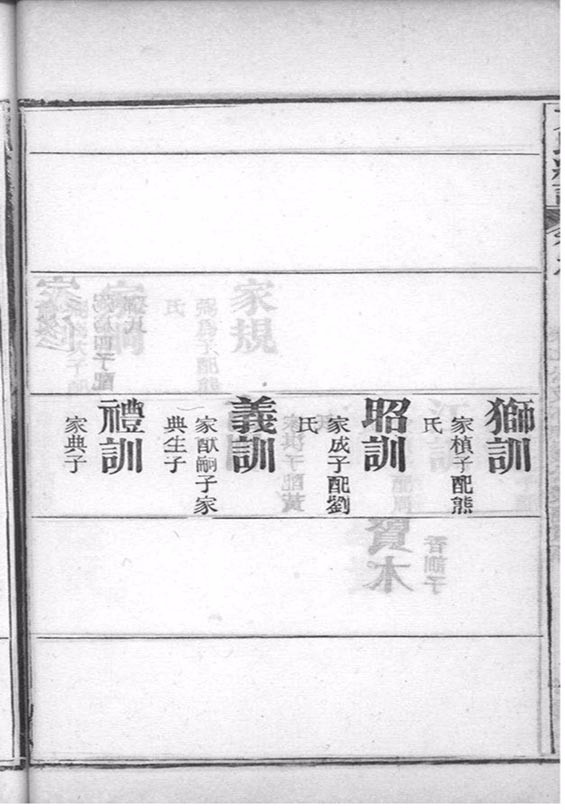 獅訓
家楨子配熊
氏
昭訓
家成子配劉
氏
義訓
家猷嗣子家
典生子
禮訓
家典子